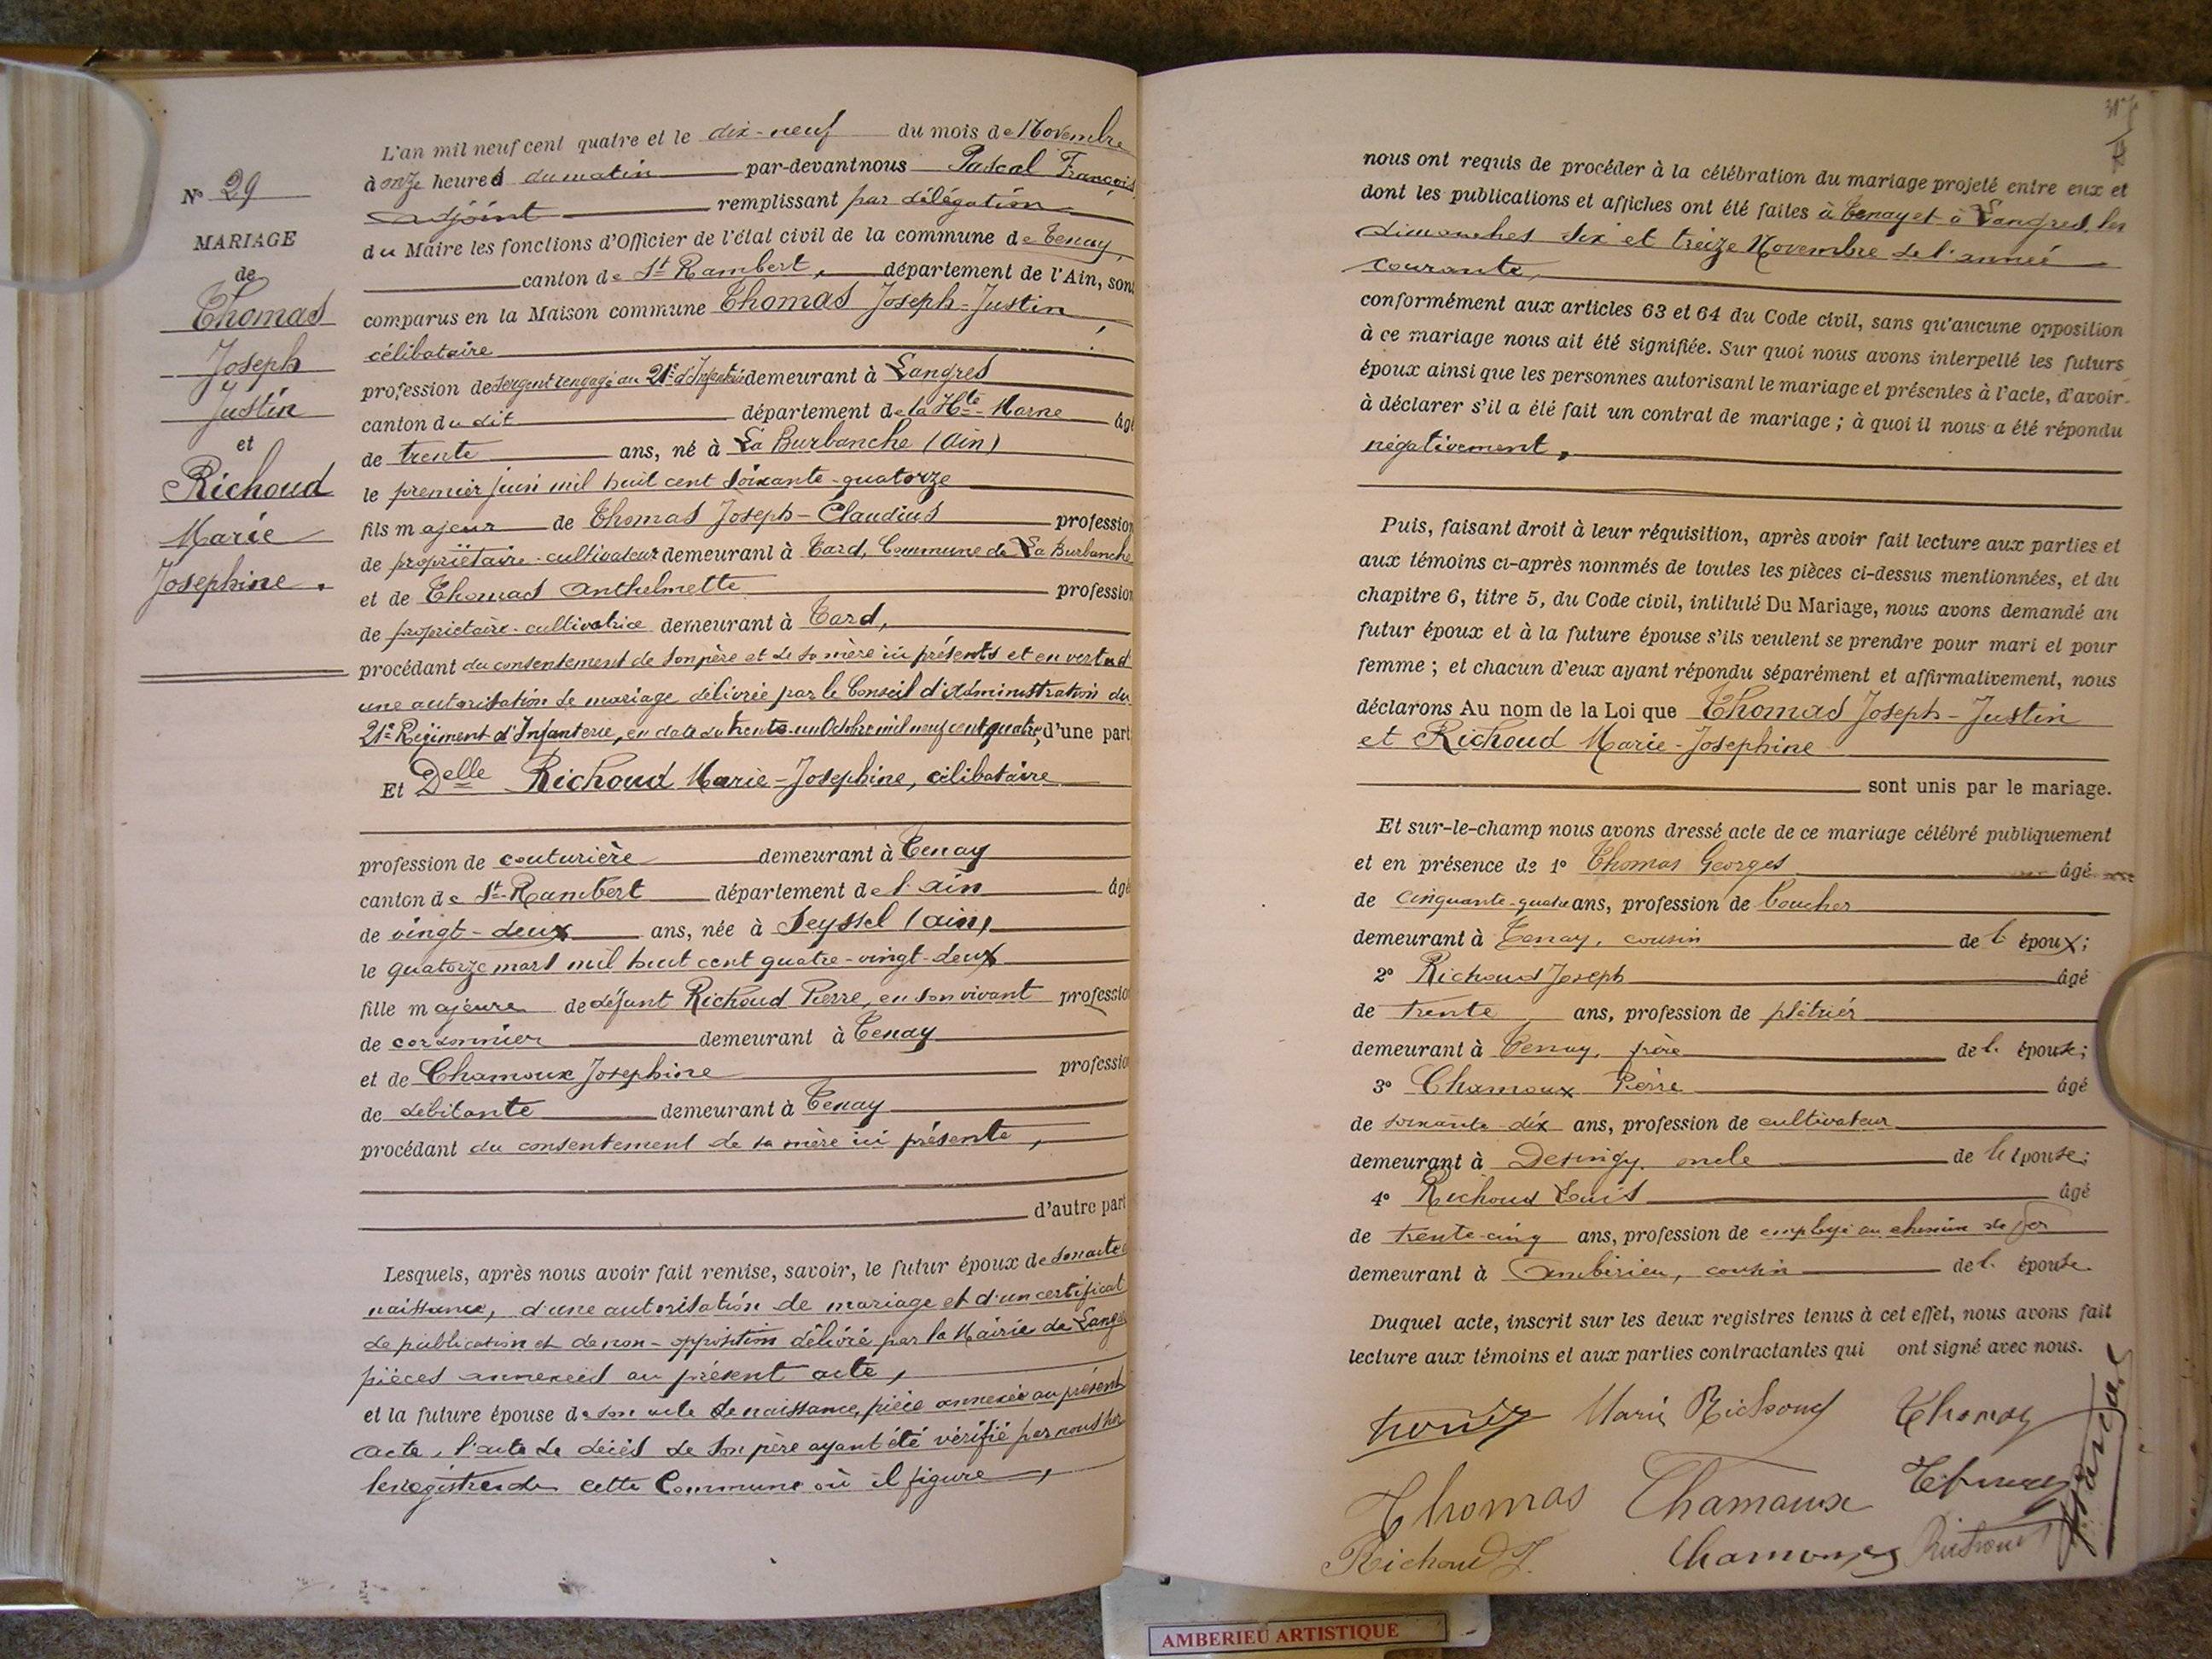 N° 29
MARIAGE
de
Thomas
Joseph
Justin
et
Richoud
Marie
Josephine.
L'an mil neuf cent quatre et le dix-neuf du mois de Novembre
à onze heures du matin par-devant nous Pascal François
adjoint remplissant par délégation
du Maire les fonctions d'Officier de l'état civil de la commune de Tenay,
canton de St Rambert, département de l'Ain, sont
comparus en la Maison commune Thomas Joseph-Justin
célibataire
profession de Sergent rengagé au 21e d'Infanterie demeurant à Langres
canton du dit département de la Hte-Marne âgé
de trente ans, né à La Burbanche (Ain)
le premier juin mil huit cent soixante-quatorze
fils majeur de Thomas Joseph-Claudius profession
de propriétaire-cultivateur demeurant à Tard, Commune de La Burbanche
et de Thomas Anthelmette profession
de propriétaire-cultivatrice demeurant à Tard,
procédant du consentement de son père et de sa mère ici présents et en vertu d
une autorisation de mariage délivrée par le Conseil d'Administration du
21e Régiment d'Infanterie, en date du trente-un Octobre mil neuf cent quatre, d'une part
Et Delle Richoud Marie-Josephine, célibataire
profession de couturière demeurant à Tenay
canton de St-Rambert département de l'Ain âgé
de vingt-deux ans, née à Seyssel (Ain)
le quatorze mars mil huit cent quatre-vingt-deux
fille majeure de défunt Richoud Pierre, en son vivant profession
de cordonnier demeurant à Tenay
et de Chamoux Josephine profession
de débitante demeurant à Tenay
procédant du consentement de sa mère ici présente,
d'autre part
Lesquels, après nous avoir fait remise, savoir, le futur époux de son acte
naissance, d'une autorisation de mariage et d'un certificat
de publication et de non-opposition délivré par la Mairie de Langres
pièces annexées au présent acte,
et la future épouse de son acte de naissance, pièce annexée au présent
acte, l'acte de décès de son père ayant été vérifié par nous sur
le registre de cette Commune où il figure,
nous ont requis de procéder à la célébration du mariage projeté entre eux et
dont les publications et affiches ont été faites à Tenay et à Langres, les
dimanches six et treize Novembre de l'année
courante,
conformément aux articles 63 et 64 du Code civil, sans qu'aucune opposition
à ce mariage nous ait été signifiée. Sur quoi nous avons interpellé les futurs
époux ainsi que les personnes autorisant le mariage et présentes à l'acte, d'avoir
à déclarer s'il a été fait un contrat de mariage ; à quoi il nous a été répondu
négativement,
Puis, faisant droit à leur réquisition, après avoir fait lecture aux parties et
aux témoins ci-après nommés de toutes les pièces ci-dessus mentionnées, et du
chapitre 6, titre 5, du Code civil, intitulé Du Mariage, nous avons demandé au
futur époux et à la future épouse s'ils veulent se prendre pour mari et pour
femme ; et chacun d'eux ayant répondu séparément et affirmativement, nous
déclarons Au nom de la Loi que Thomas Joseph-Justin
et Richoud Marie-Josephine
sont unis par le mariage.
Et sur-le-champ nous avons dressé acte de ce mariage célébré publiquement
et en présence de 1° Thomas Georges âgé
de cinquante-quatre ans, profession de boucher
demeurant à Tenay, cousin de l'époux;
2° Richoud Joseph âgé
de trente ans, profession de plâtrier
demeurant à Tenay, frère de l'épouse;
3° Chamoux Pierre âgé
de soixante-dix ans, profession de cultivateur
demeurant à Desingy, oncle de l'épouse;
4° Richoud Louis âgé
de trente-cinq ans, profession de employé au chemin de fer
demeurant à Ambérieu, cousin de l'épouse.
Duquel acte, inscrit sur les deux registres tenus à cet effet, nous avons fait
lecture aux témoins et aux parties contractantes qui ont signé avec nous.
Marie Richoud Thomas
Thomas Chamoux Thomas
Richoud J. Chamoux Richoud
AMBERIEU ARTISTIQUE